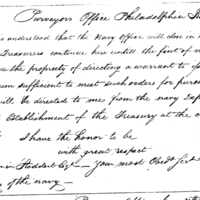 Purveyors Office Philadelphia
is understood that the Navy Office will close in
Treasurers continue here untill the first of
you the propriety of directing a warrant to
sum sufficient to meet such orders for
will be directed to me from the navy
Establishment of the Treasury at the
I have the honor to be
with great respect
Stoddert Esqr — Your most Obedt
of the navy —